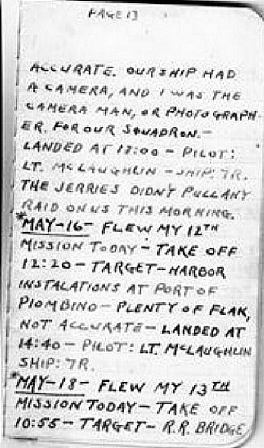 PAGE 13
ACCURATE. OUR SHIP HAD
A CAMERA, AND I WAS THE
CAMERA MAN, OR PHOTOGRAPH-
ER, FOR OUR SQUADRON.-
LANDED AT 18:00 - PILOT:
LT. MCLAUGHLIN - SHIP: 7R.
THE JERRIES DIDN'T PULL ANY
RAID ON US THIS MORNING.
*MAY-16- FLEW MY 12TH
MISSION TODAY - TAKE OFF
12:20 - TARGET - HARBOR
INSTALATIONS AT PORT OF
PIOMBINO - PLENTY OF FLAK,
NOT ACCURATE - LANDED AT
14:40 - PILOT: LT. MCLAUGHLIN
SHIP: 7R.
*MAY-18- FLEW MY 13TH
MISSION TODAY - TAKE OFF
10:55 - TARGET - R.R. BRIDGE